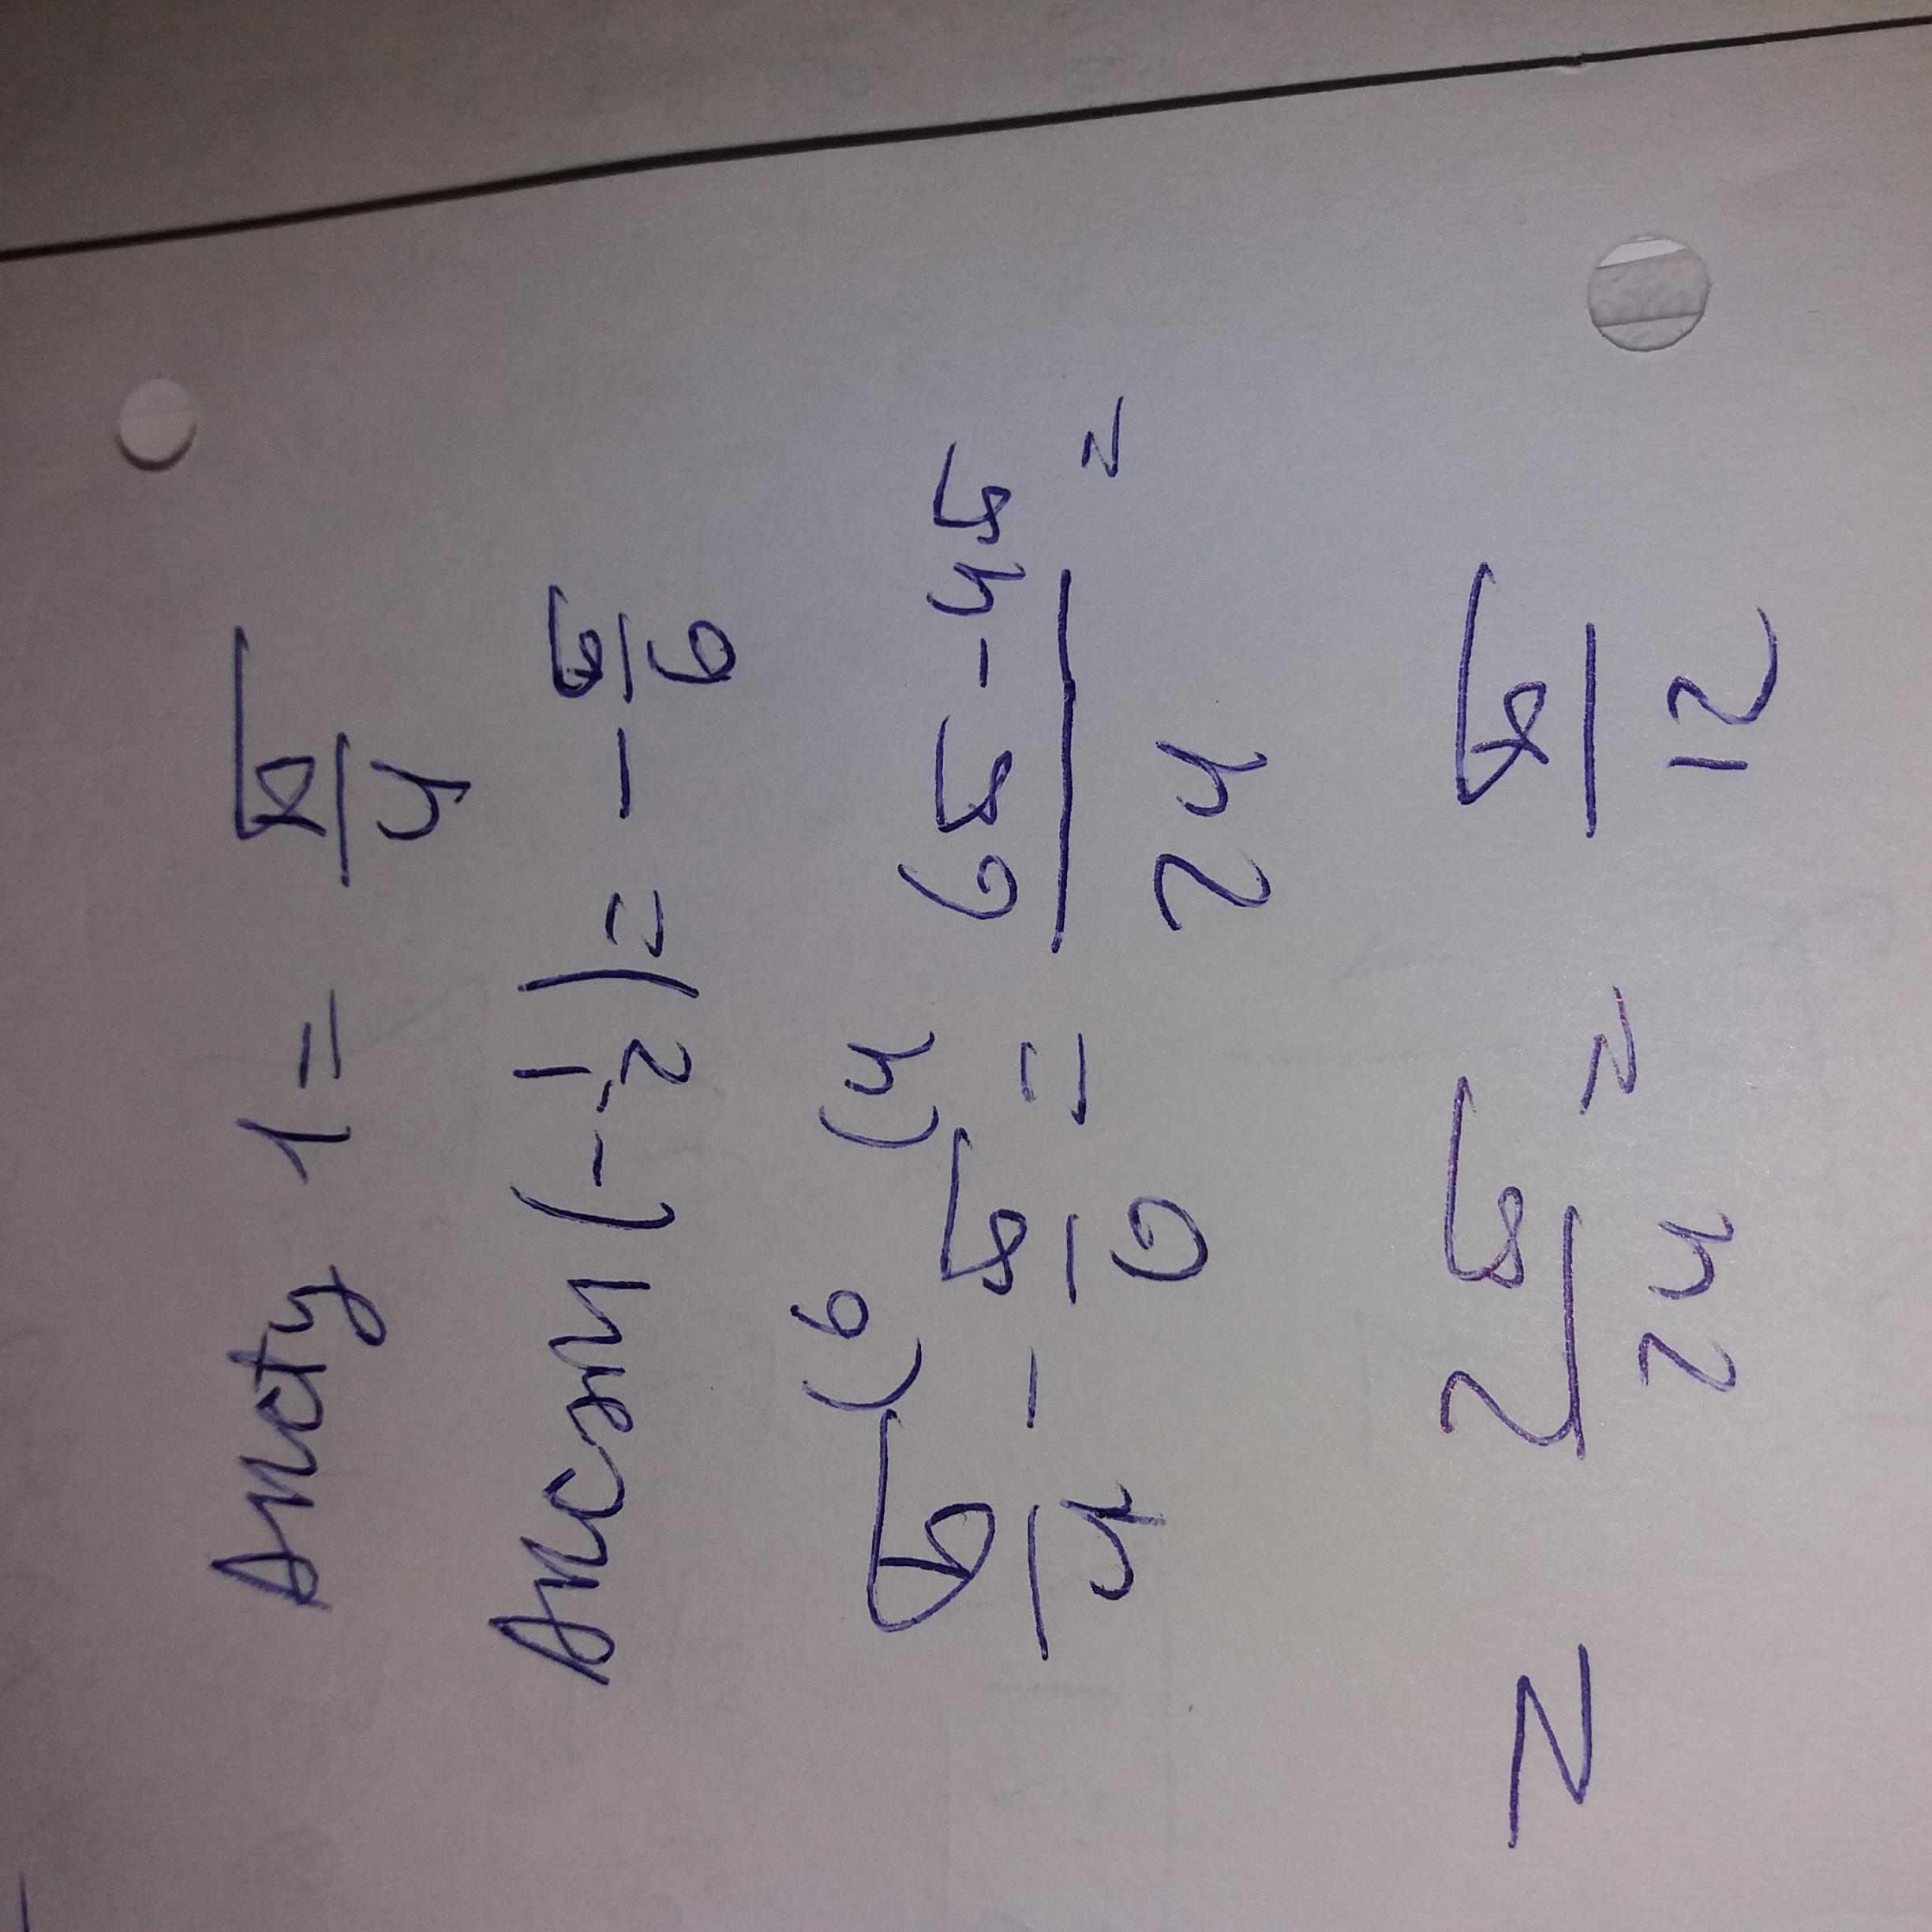 Arctg 1 = π/4
Arcsin(-1/2) = - π/6
π/4 (6 - π/6 (4 = 6π - 4π/24 =
= 2π/24 = π/12